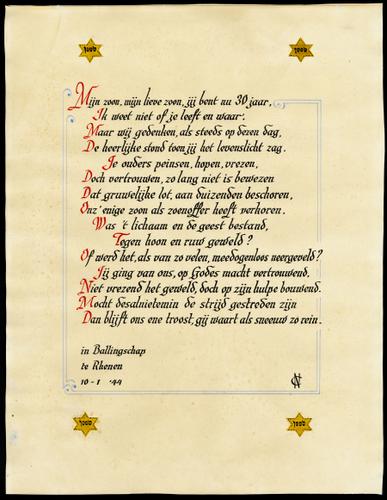 Mijn zoon, mijn lieve zoon, jij bent nu 30 jaar,
Ik weet niet of je leeft en waar.
Maar wij gedenken, als steeds op dezen dag,
De heerlijke stond toen jij het levenslicht zag.
Je ouders peinsen, hopen, vrezen,
Doch vertrouwen, zo lang niet is bewezen
Dat gruwelijke lot, aan duizenden beschoren,
Onz' enige zoon als zoenoffer heeft verkoren.
Was 't lichaam en de geest bestand,
Tegen hoon en ruw geweld?
Of werd het, als van zo velen, meedogenloos neergeveld?
Jij ging van ons, op Godes macht vertrouwend,
Niet vrezend het geweld, doch op zijn hulpe bouwend.
Mocht desalnietemin de strijd gestreden zijn
Dan blijft ons ene troost, gij waart als sneeuw zo rein.
in Ballingschap
te Rhenen
10-1 '44